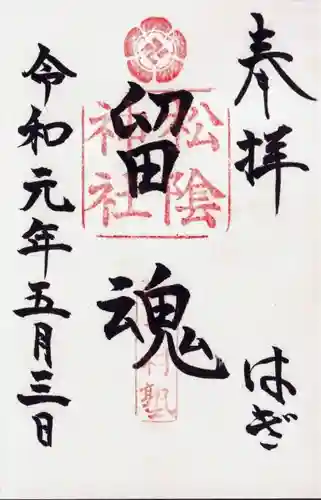 奉拝
はぎ
留魂
松陰
神社
村塾
令和元年五月三日